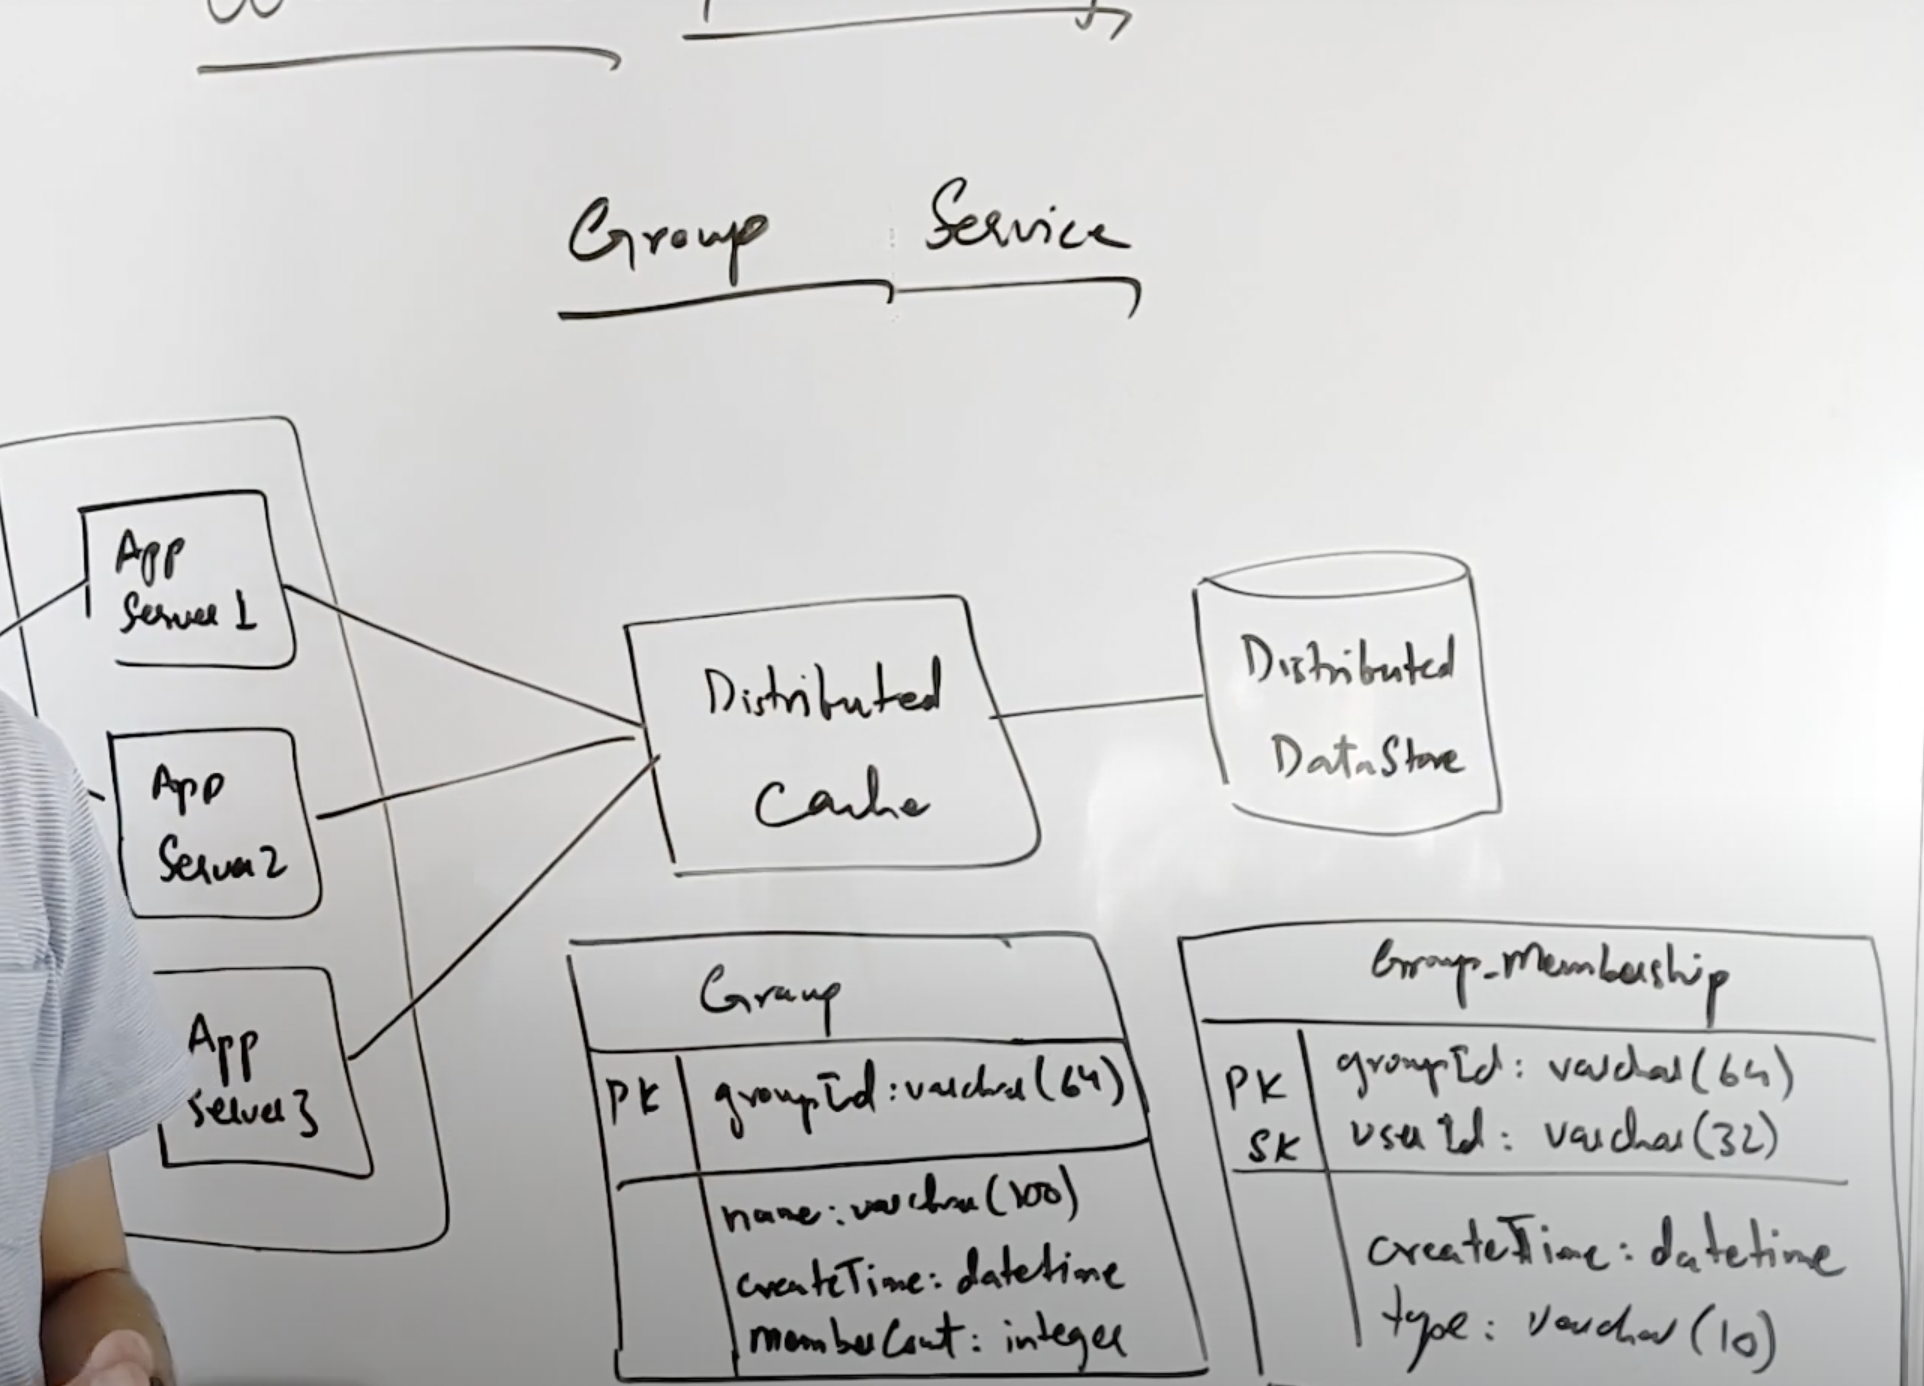 Group Service
App
Server 1
App
Server 2
App
Server 3
Distributed
Cache
Distributed
DataStore
Group
PK groupId: varchar(64)
name: varchar(100)
createTime: datetime
memberCount: integer
Group_Membership
PK groupId: varchar(64)
SK userId: varchar(32)
createTime: datetime
type: varchar(10)